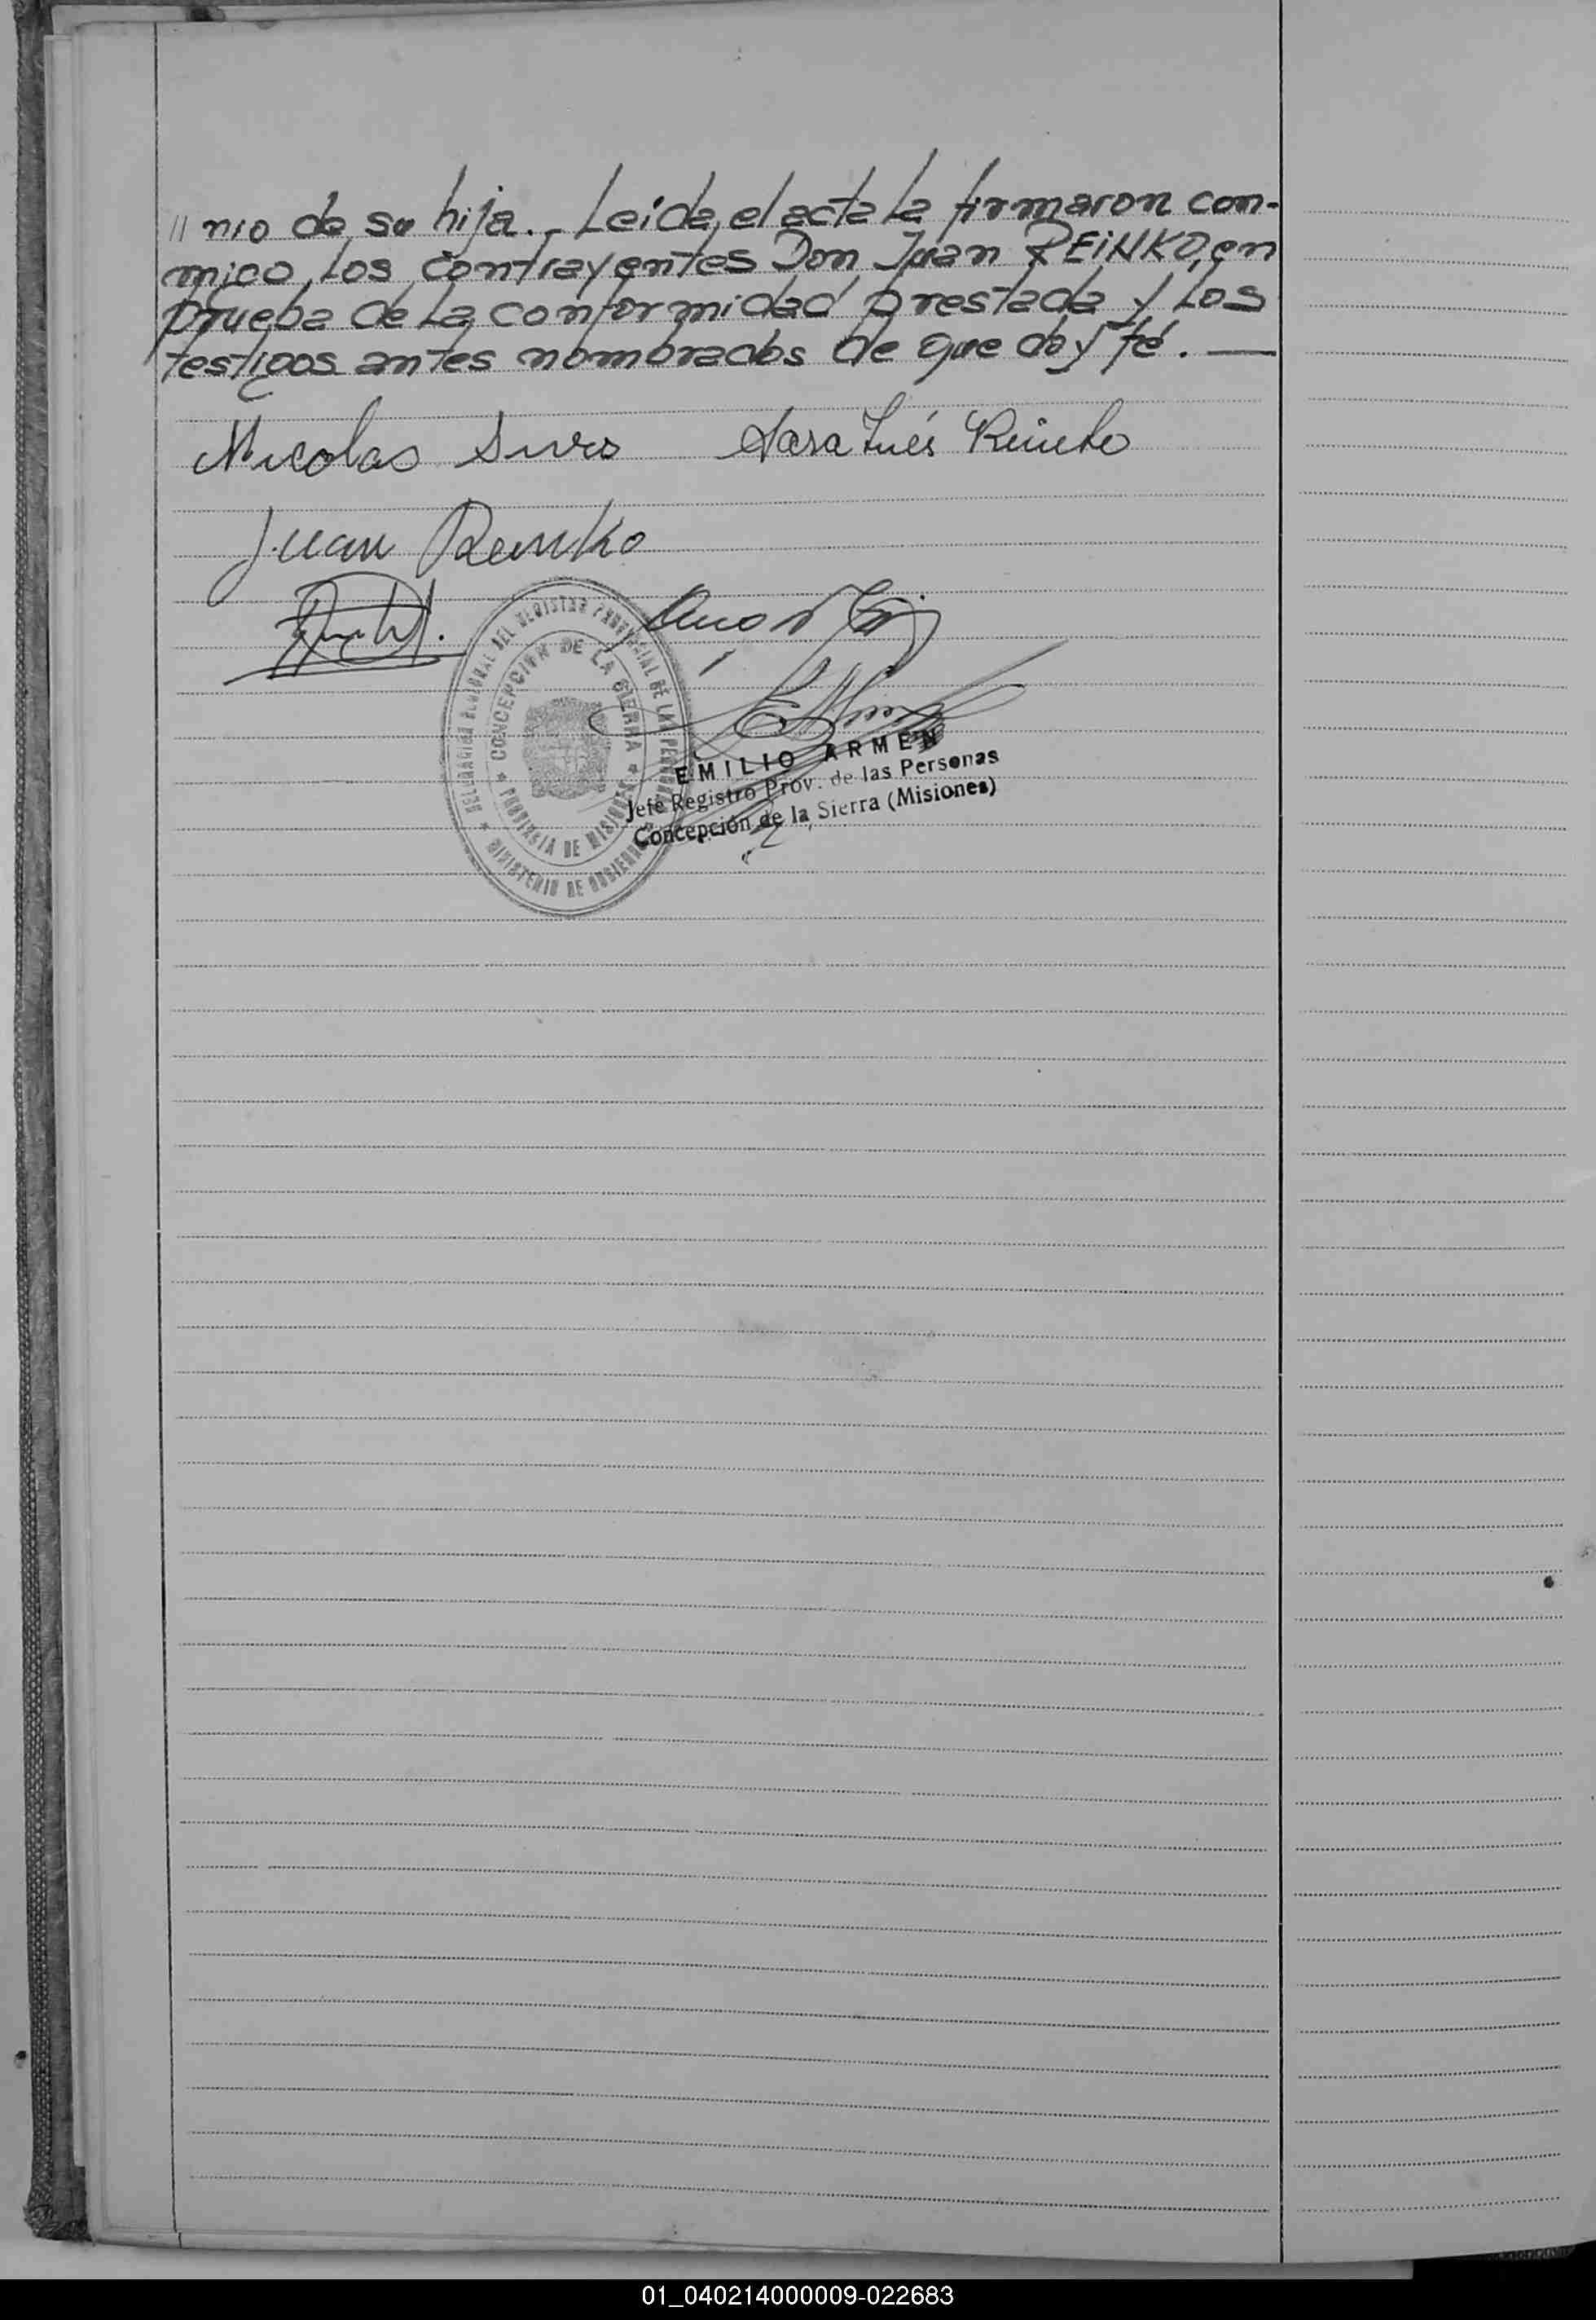 // nio de su hija.- Leida, el acta la firmaron con-
migo, los contrayentes Don Juan REINKO, en
prueba de la conformidad prestada y los
testigos antes nombrados de que doy fé. —
Nicolas Sara Inés Reinko
Juan Reinko
DEL REGISTRO PROVINCIAL DE LAS PERSONAS
CONCEPCION DE LA SIERRA
PROVINCIA DE MISIONES
MINISTERIO DE GOBIERNO
EMILIO ARMEN
Jefe Registro Prov. de las Personas
Concepción de la Sierra (Misiones)
01_040214000009-022683